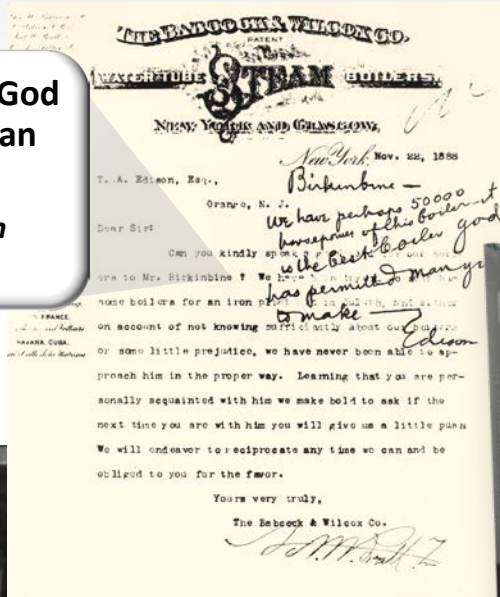 God
an
n
THE BABCOCK & WILCOX CO.
PATENT
WATER-TUBE STEAM BOILERS,
NEW YORK AND GLASGOW,
New York, Nov. 22, 1888
T. A. Edison, Esq.,
Orange, N. J.
Dear Sir:
Birkinbine —
We have perhaps 50000
horsepower of this boiler it
is the best boiler god
has permitted man yet
to make —
Edison
Can you kindly
to Mr. Birkinbine ? We have
some boilers for an iron
on account of not knowing sufficiently about our boilers
or some little prejudice, we have never been able to ap-
proach him in the proper way. Learning that you are per-
sonally acquainted with him we make bold to ask if the
next time you are with him you will give us a little push
We will endeavor to reciprocate any time we can and be
obliged to you for the favor.
Yours very truly,
The Babcock & Wilcox Co.
FRANCE.
HAVANA, CUBA.